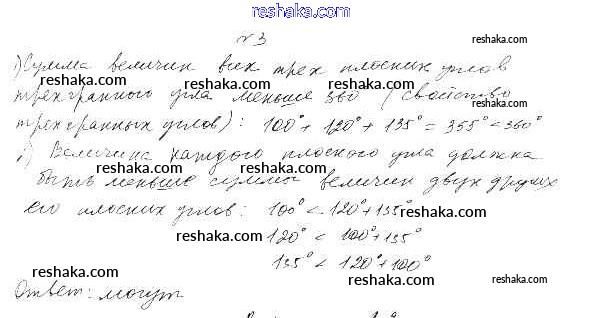 reshaka.com
№3
1) Сумма величин всех трех плоских углов reshaka.com
трехгранного угла меньше 360 (свойство
трехгранных углов): 100° + 120° + 135° = 355° < 360°
2) Величина каждого плоского угла должна
быть меньше суммы величин двух других
его плоских углов: 100° < 120° + 135°
120° < 100° + 135°
135° < 120° + 100°
Ответ: могут
reshaka.com
reshaka.com
reshaka.com
reshaka.com
reshaka.com
reshaka.com
reshaka.com
reshaka.com
reshaka.com
reshaka.com
reshaka.com